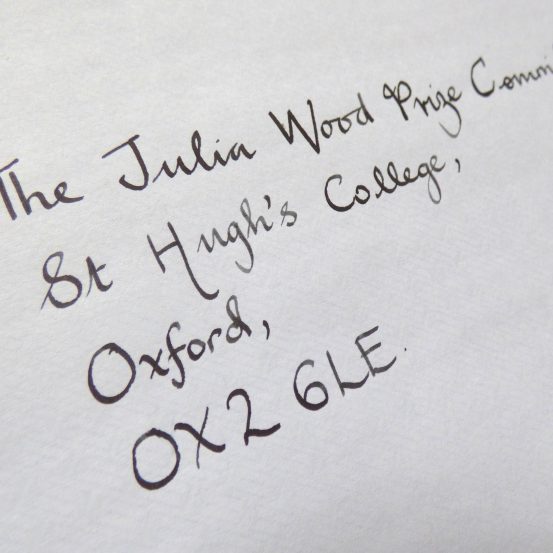 The Julia Wood Prize Commi
St Hugh's College,
Oxford,
OX2 6LE.